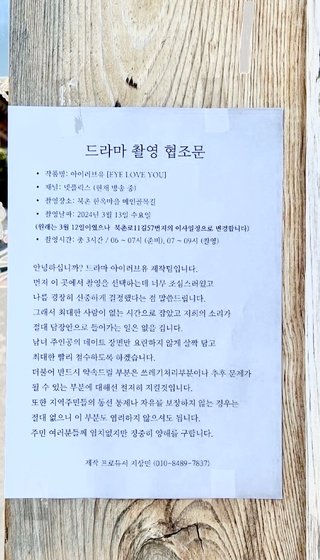 드라마 촬영 협조문
• 작품명: 아이러브유 [EYE LOVE YOU]
• 채널: 넷플릭스 (현재 방송 중)
• 촬영장소: 북촌 한옥마을 메인골목길
• 촬영날짜: 2024년 3월 13일 수요일
(원래는 3월 12일이였으나 북촌로11길57번지의 이사일정으로 변경합니다)
• 촬영시간: 총 3시간 / 06 ~ 07시 (준비), 07 ~ 09시 (촬영)
안녕하십니까? 드라마 아이러브유 제작팀입니다.
먼저 이 곳에서 촬영을 선택하는데 너무 조심스러웠고
나름 굉장히 신중하게 결정했다는 점 말씀드립니다.
그래서 최대한 사람이 없는 시간으로 잡았고 저희의 소리가
절대 담장안으로 들어가는 일은 없을 겁니다.
남녀 주인공의 데이트 장면만 요란하지 않게 살짝 담고
최대한 빨리 철수하도록 하겠습니다.
더불어 반드시 약속드릴 부분은 쓰레기처리부분이나 추후 문제가
될 수 있는 부분에 대해선 철저히 지킬것입니다.
또한 지역주민들의 동선 통제나 자유를 보장하지 않는 경우는
절대 없으니 이 부분도 염려하지 않으셔도 됩니다.
주민 여러분들께 염치없지만 정중히 양해를 구합니다.
제작 프로듀서 지상민 (010-8489-7837)